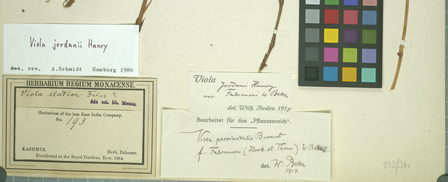 Viola jordanii Hanry
det. rev. A.Schmidt Hamburg 1980
HERBARIUM REGIUM MONACENSE.
Viola
Herbarium of the late East India Company.
No. 193
KASHMIR. Herb. Falconer.
Distributed at the Royal Gardens, Kew, 1864.
Viola
Jordani Hanry
var. Falconeri W. Bckr
det. Wilh. Becker.
Bearbeitet für das „Pflanzenreich“.
Viola provincialis Burnat
f. Falconeri (Hook. et Thoms.) W. Bckr
det. W. Bckr
132/34